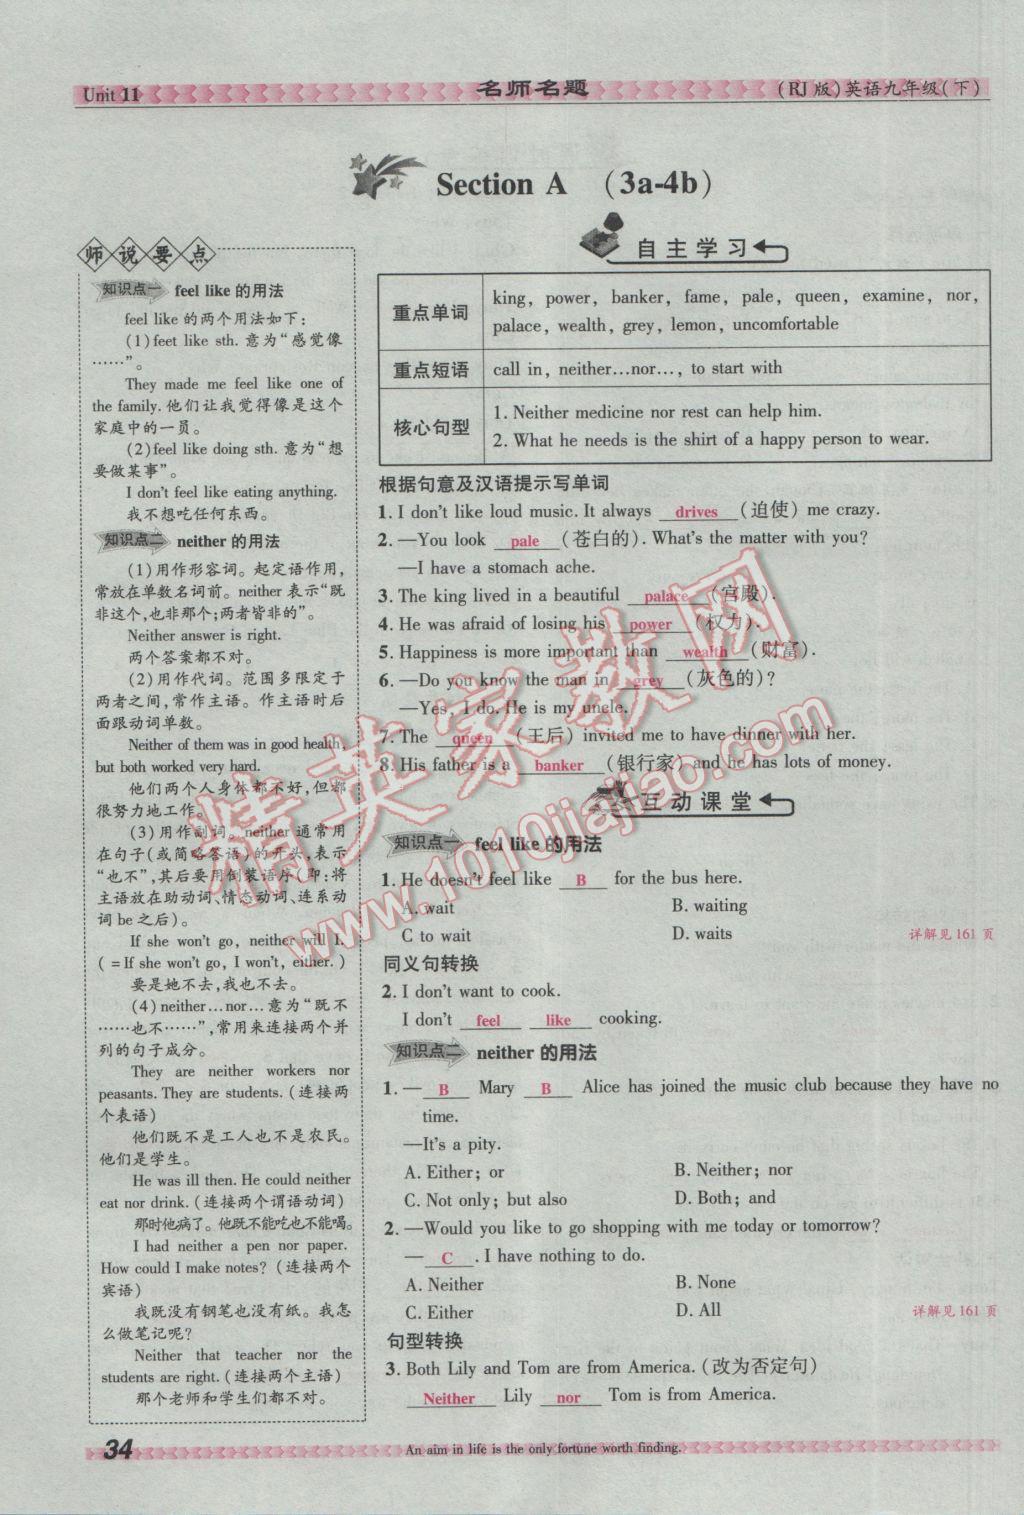 Unit 11
名师名题
(RJ版)英语九年级(下)
Section A (3a-4b)
师说要点
知识点一 feel like 的用法
feel like 的两个用法如下:
(1)feet like sth. 意为“感觉像
……”。
They made me feel like one of
the family. 他们让我觉得像是这个
家庭中的一员。
(2)feel like doing sth. 意为“想
要做某事”。
I don't feel like eating anything.
我不想吃任何东西。
知识点二 neither 的用法
(1)用作形容词。起定语作用,
常放在单数名词前。neither 表示“既
非这个,也非那个;两者皆非的”。
Neither answer is right.
两个答案都不对。
(2)用作代词。范围多限定于
两者之间,常作主语。作主语时后
面跟动词单数。
Neither of them was in good health,
but both worked very hard.
他们两个人身体都不好,但都
很努力地工作。
(3)用作副词。neither 通常用
在句子(或简略答语)的开头,表示
“也不”,其后要用倒装语序(即:将
主语放在助动词、情态动词、连系动
词 be 之后)。
If she won't go, neither will I.
(=If she won't go, I won't, either.)
要是她不去,我也不去。
(4)neither…nor…意为“既不
……也不……”,常用来连接两个并
列的句子成分。
They are neither workers nor
peasants. They are students. (连接两
个表语)
他们既不是工人也不是农民。
他们是学生。
He was ill then. He could neither
eat nor drink. (连接两个谓语动词)
那时他病了。他既不能吃也不能喝。
I had neither a pen nor paper.
How could I make notes? (连接两个
宾语)
我既没有钢笔也没有纸。我怎
么做笔记呢?
Neither that teacher nor the
students are right. (连接两个主语)
那个老师和学生们都不对。
自主学习
重点单词 king, power, banker, fame, pale, queen, examine, nor,
palace, wealth, grey, lemon, uncomfortable
重点短语 call in, neither…nor…, to start with
核心句型 1. Neither medicine nor rest can help him.
2. What he needs is the shirt of a happy person to wear.
根据句意及汉语提示写单词
1. I don't like loud music. It always drives (迫使) me crazy.
2. —You look pale (苍白的). What's the matter with you?
—I have a stomach ache.
3. The king lived in a beautiful palace (宫殿).
4. He was afraid of losing his power (权力).
5. Happiness is more important than wealth (财富).
6. —Do you know the man in grey (灰色的)?
—Yes, I do. He is my uncle.
7. The queen (王后) invited me to have dinner with her.
8. His father is a banker (银行家) and he has lots of money.
互动课堂
知识点一 feel like 的用法
1. He doesn't feel like B for the bus here.
A. wait B. waiting
C to wait D. waits 详解见161页
同义句转换
2. I don't want to cook.
I don't feel like cooking.
知识点二 neither 的用法
1. — B Mary B Alice has joined the music club because they have no
time.
—It's a pity.
A. Either; or B. Neither; nor
C. Not only; but also D. Both; and
2. —Would you like to go shopping with me today or tomorrow?
— C . I have nothing to do.
A. Neither B. None
C. Either D. All 详解见161页
句型转换
3. Both Lily and Tom are from America. (改为否定句)
Neither Lily nor Tom is from America.
精英家教网
www.1010jiajiao.com
34
An aim in life is the only fortune worth finding.